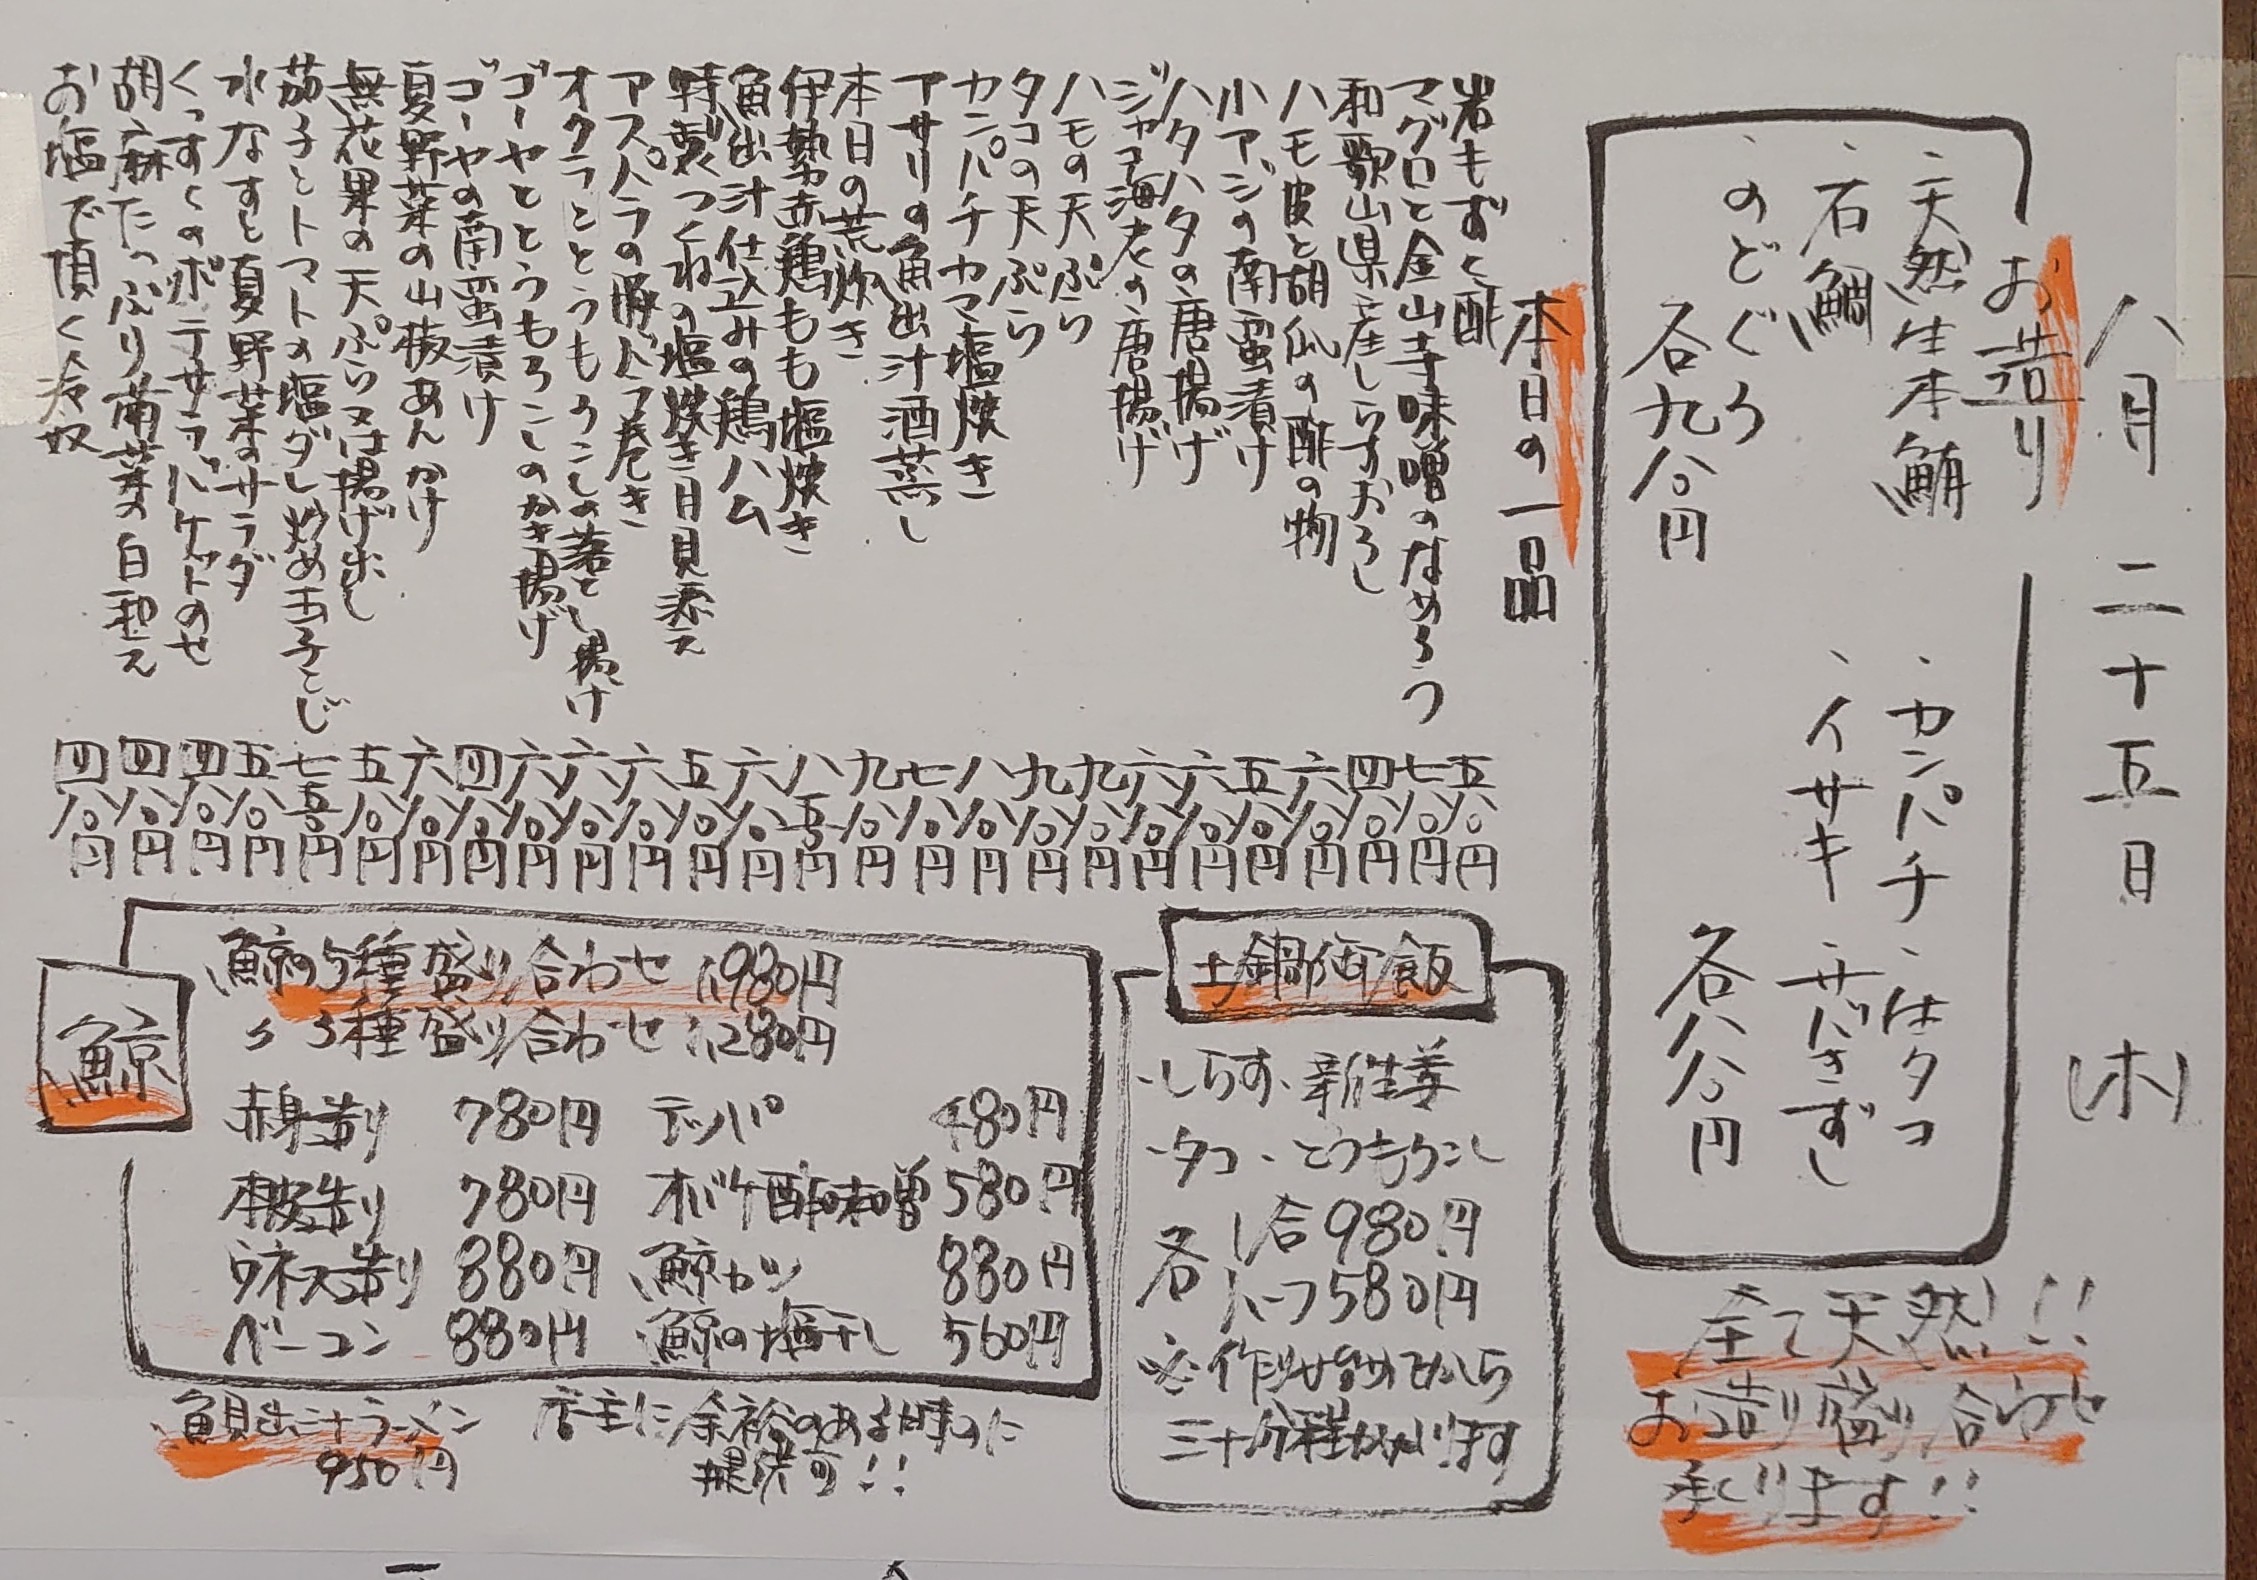 八月二十五日(木)
お造り
、天然生本鮪
、石鯛
、のどぐろ
各九八〇円
、カンパチ
、はタコ
、イサキ
、サバきずし
各八八〇円
全て天然!!
お造り盛り合わせ
承ります!!
本日の一品
岩もずく酢 五八〇円
マグロと金山寺味噌のなめろう 七八〇円
和歌山県産しらすおろし 四八〇円
ハモ皮と胡瓜の酢の物 六八〇円
小アジの南蛮漬け 五八〇円
ハタハタの唐揚げ 六八〇円
ジャコ海老の唐揚げ 六八〇円
ハモの天ぷら 九八〇円
タコの天ぷら 九八〇円
カンパチカマ塩焼き 八八〇円
アサリの魚出汁酒蒸し 七八〇円
本日の荒炊き 九八〇円
伊勢赤鶏もも塩焼き 八五〇円
魚出汁仕込みの鶏ハム 六八〇円
特製つくねの塩焼き月見添え 五八〇円
アスパラの豚バラ巻き 六八〇円
オクラととうもろこしの落とし揚げ 六八〇円
ゴーヤととうもろこしのかき揚げ 六八〇円
ゴーヤの南蛮漬け 四八〇円
夏野菜の山椒あんかけ 六八〇円
無花果の天ぷら又は揚げ出し 五八〇円
茄子とトマトの塩ダレ炒め玉子とじ 七五〇円
水なすと夏野菜のサラダ 五八〇円
くっすくのポテサラバケットのせ 四八〇円
胡麻たっぷり蒲菜の白和え 四八〇円
お塩で頂く冷奴 四八〇円
土鍋御飯
・しらす、新生姜
・タコ、とうもろこし
各一合980円
ハーフ580円
※作り始めてから
三十分程かかります
鯨
鯨の5種盛り合わせ 1,980円
〃 3種盛り合わせ 1,280円
赤身造り 780円 テッパ 480円
本皮造り 780円 オバケ酢味噌 580円
ウネス造り 880円 鯨カツ 880円
ベーコン 880円 鯨の塩干し 560円
魚出汁ラーメン
950円
店主に余裕のある時のに
提供可!!